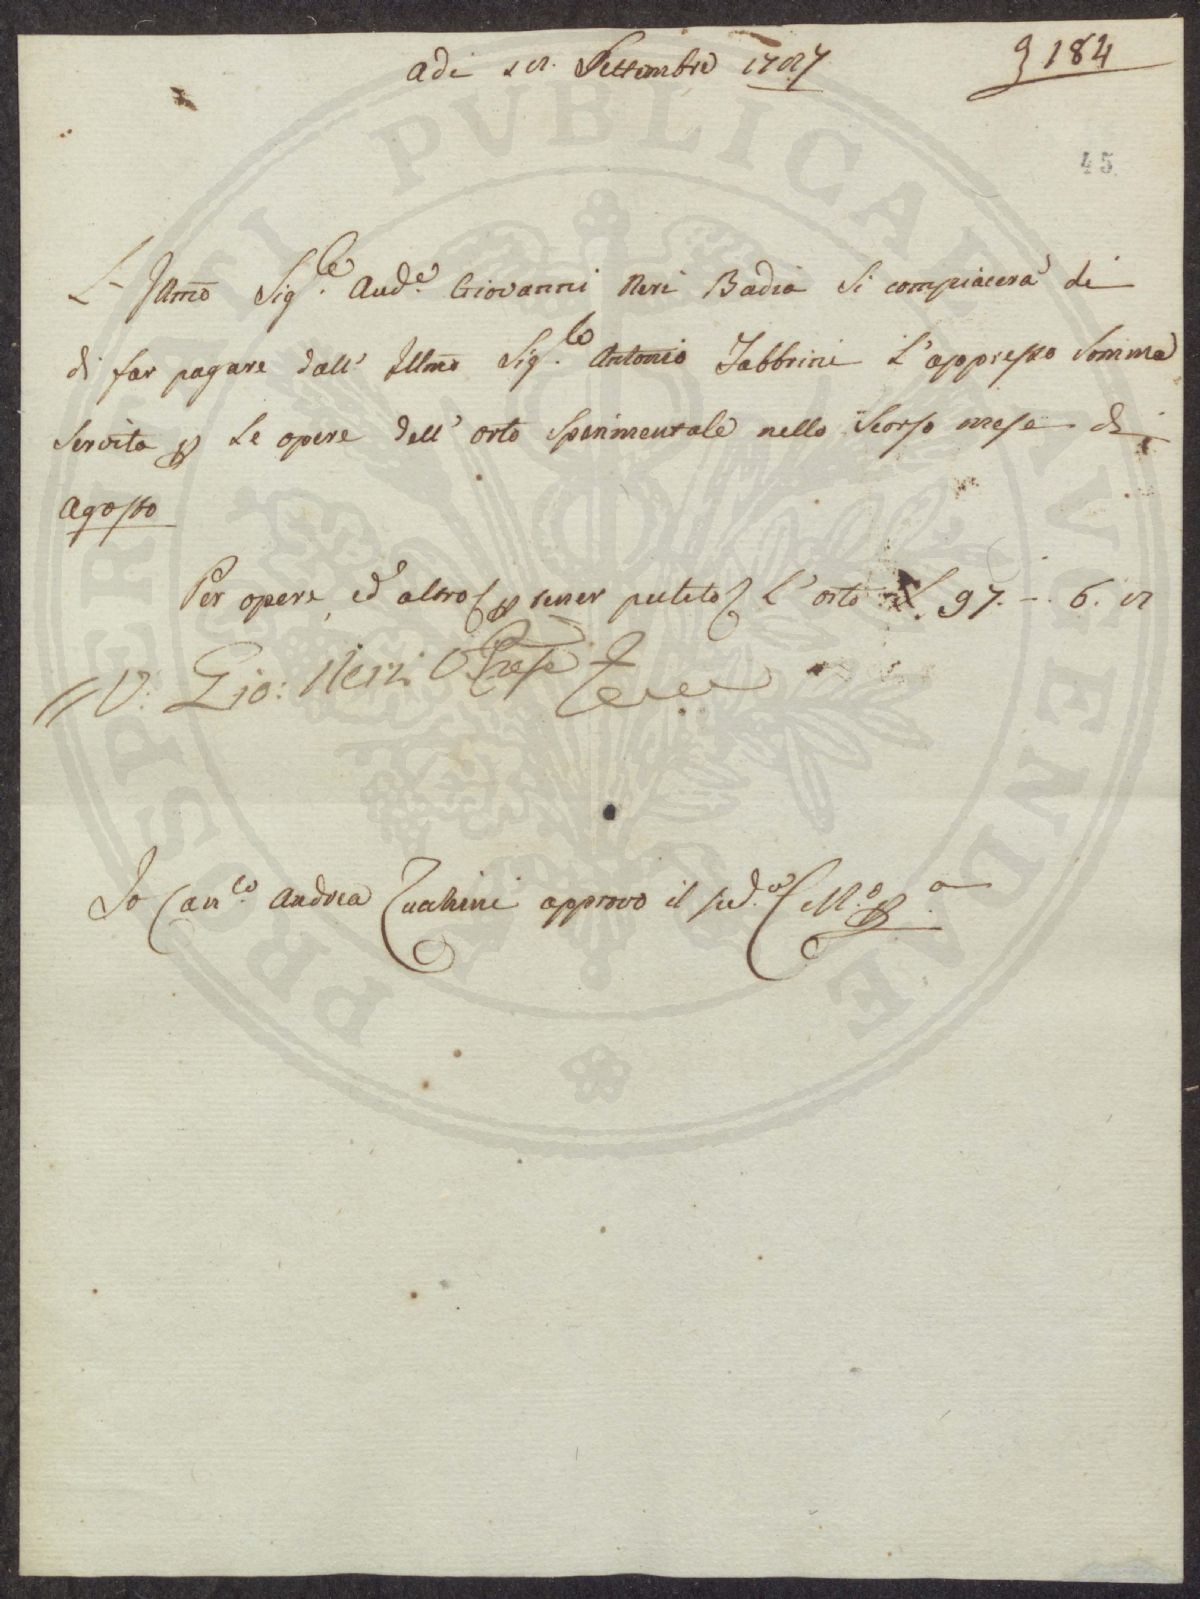 Adi Settembre 1787
184
45
L'Illmo Sig.re Aud.e Giovanni Neri Badia si compiacerà di
di far pagare dall' Illmo Sig.re Antonio Fabbrini L'appresso Somma
Servita p Le opere dell' orto Sperimentale nello Scorso mese di
Agosto
Per opere ed altro p tener pulito L'orto L. 97.-. 6.
V. Gio: Neri
Io Can.co Andrea Zucchini approvo il sud.o
PROSPERITATI PUBLICAE AVGENDAE